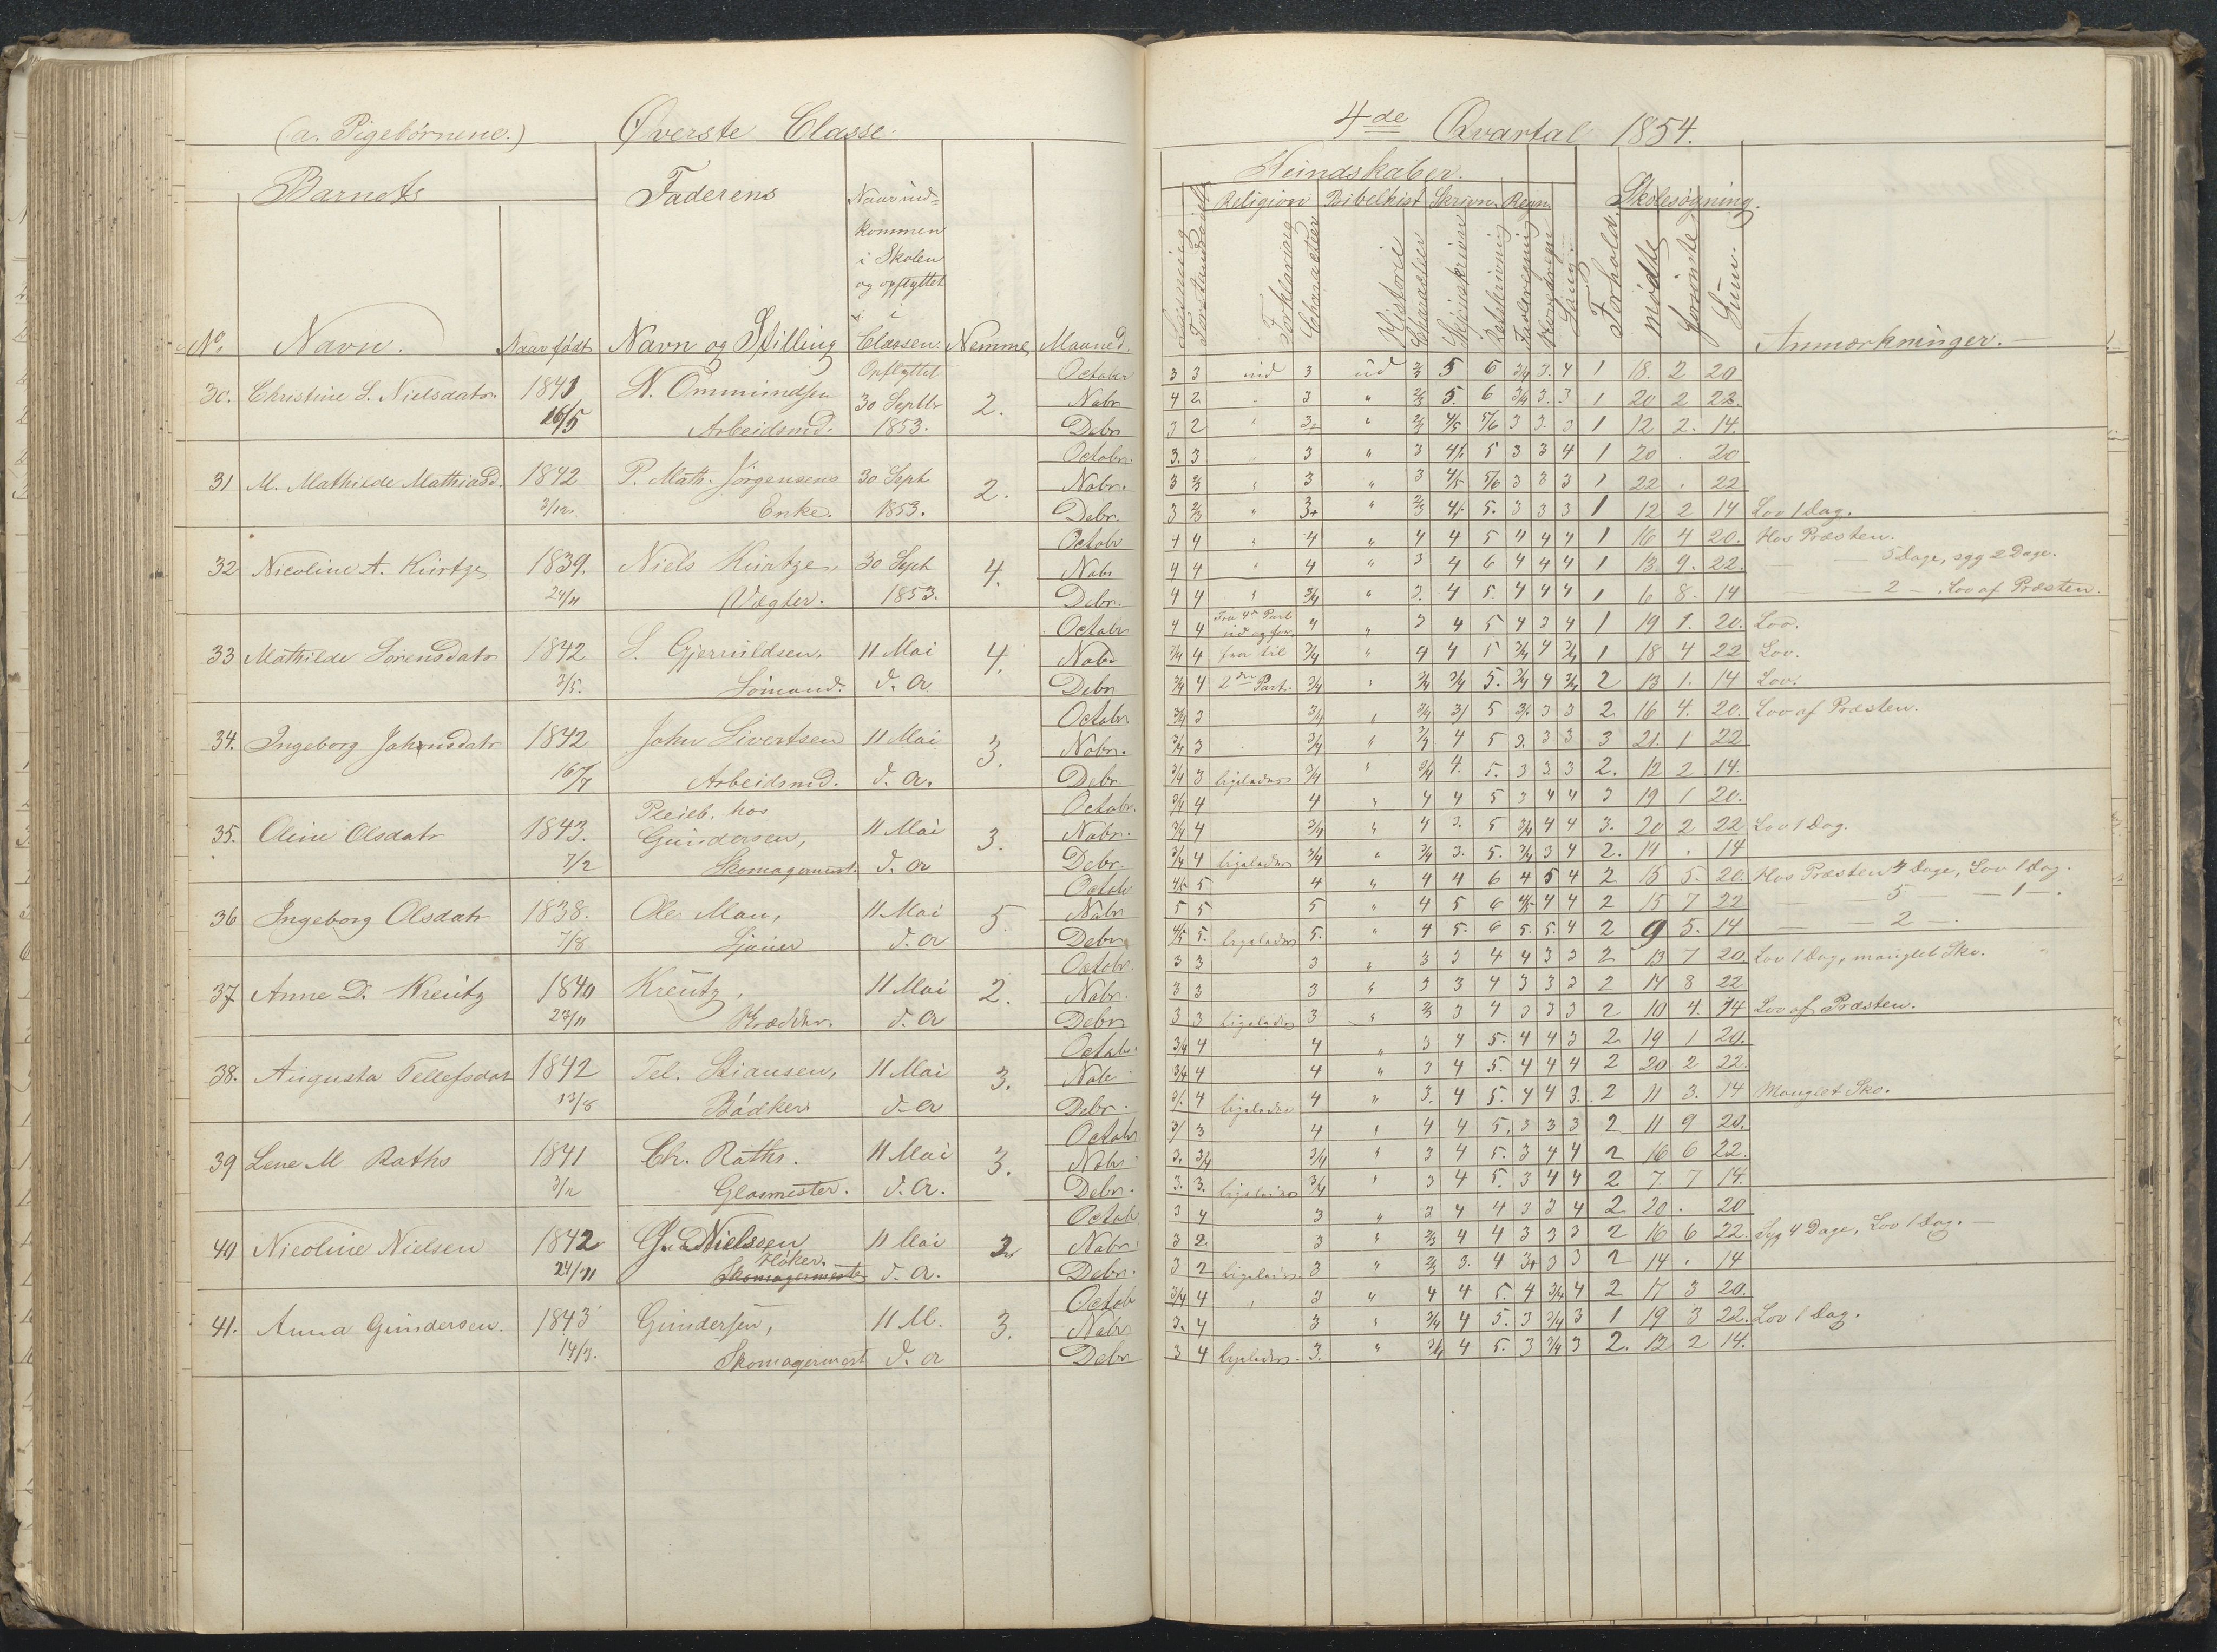 (a. Pigebørnene.) Øverste Classe.
Barnets Faderens Naar ind=
kommen
i Skolen
og opflyttet
i
No. Navn. Naar født Navn og Stilling Classen. Nemme Maaned.
30. Christine S. Nielsdatr. 1841 N. Ommundsen Opflyttet October
16/5 Arbeidsmd. 30 Septbr 2. Nobr
1853. Debr
31 M. Mathilde Mathiasd. 1842 P. Math. Jørgensens 30 Sept 2. Octobr.
3/12. Enke. 1853. Nobr.
Debr.
32 Nicoline A. Kürtze 1839. Niels Kürtze, 30 Sept 4. Octobr
24/11 Vægter. 1853. Nobr
Debr.
33 Mathilde Sørensdatr 1842 S. Gjeruldsen, 11 Mai 4. Octobr
3/5. Sømand. d. a Nobr
Debr
34. Ingeborg Johnsdatr 1842 John Sivertsen 11 Mai 3. Octobr
16/7 Arbeidsmd. d. a. Nobr.
Debr.
35. Oline Olsdatr 1843. Pleieb. hos 11 Mai 3. Octobr.
7/2 Gundersen, d. a Nobr.
Skomagermest. Debr.
36 Ingeborg Olsdatr 1838. Ole Mau, 11 Mai 5. Octobr
7/8 Sjauer d. a Nobr
Debr
37 Anne D. Kreutz 1840 Kreutz, 11 Mai 2. Octobr.
23/11 d. a Nobr.
Debr
38. Augusta Tellefsdatr 1842 Tel. Stiansen, 11 Mai 3. Octobr.
13/8 Bødker d. a Nobr
Debr.
39 Lene M Raths 1841 Ch. Raths. 11 Mai 3. Octobr
3/12 Glasmester. d. a. Nobr
Debr.
40 Nicoline Nielsen 1842 G. Nielssen 11 Mai 2. Octobr
24/11 Høker. d. a. Nobr
Skomagermester Debr.
41. Anna Gundersen. 1843 Gundersen, 11 M. 3. Octobr
14/3. Skomagermest d. a Nobr
Debr
4de Qvartal 1854.
Kundskaber. Skolesøgning.
Religion Bibelhist Skrivn. Regn.
Forklaring Characteer Historie Characteer Skjønskrivn Retskrivning Tavleregning Sang. Forhold. mødte forsømte Sum Anmærkninger.
3 3 ud 3 ud 2/3 5 6 3/4 3. 4 1 18. 2 20
4 2 " 3 " 2/3 5. 6 3/4 3. 3 1 20 2 22.
3 2 " 3+ " 2/3 4/5 5/6 3 3. 3 1 12 2. 14.
3. 3 " 3 " 3 4/5 5 3 3 4 1 20 . 20
3 2/3 " 3 " 3 4/5 5/6 3 3 3 1 22 . 22
3 2/3 " 3+ " 2/3 4/5 5. 3 3 3 1 12 2 14 Lov 1 Dag.
4 4 " 4 " 4 4 5 4 4 4 1 16 4 20. Hos Præsten.
4 4 " 4 " 3 4 6 4 4 4 1 13. 9. 22. — — 5 Dage, syg 2 Dage.
4 4 " 3/4 " 3. 4 5. 4 4 4 1 6 8. 14 — — 2 — , Lov af Præsten.
4 4 Fra 4de Part 4 " 3 4 5 4 3 4 1 19 1. 20. Lov.
ud og for=
3/4 4 fra til 3/4 " 4 4 5 3/4 4 3/4 1 18 4 22 Lov.
3/4 4 2den Part. 3/4 " 3/4 3/4 5. 3/4 4 3/4 2 13 1. 14 Lov.
3/4 3 3/4 " 3/4 3/4 5 3/4 3 3 2 16 4. 20. Lov af Præsten.
3/4 3 3/4 " 3/4 4 5 3. 3 3 3 21. 1 22
3/4 3 ligeledes 3/4 " 3/4 4. 5. 3 3. 3 2. 12 2 14.
3/4 4 4 " 4 4 5 3 4 4 3 19 1 20.
3/4 4 3/4 " 4 3. 5 3/4 4 4 3. 20 2 22 Lov 1 Dag.
3/4 4 ligeledes 3/4 " 3/4 3. 5. 3/4 3 4 2. 14 . 14
4/5 5 4 " 4 4 6 4 5 4 2 15 5. 20. Hos Præsten 4 Dage, Lov 1 Dag.
5 5 5 " 4 5 6 4/5 4 4 2 15 7 22 — — 5 — 1 —.
4/5 5. ligeledes 5. " 4 5. 6 5. 5. 4 2 9 5. 14 — — 2 —.
3 3 3 " 3 3 4 4 3 3 2 13 7 20. Lov 1 Dag, manglet Sko.
3 3 3 " 3 3 4 3 3 3 2 14 8 22
3 3 ligeledes 3 " 2/3 3 4 3 3 3 2 10 4. 14 Lov af Præsten.
3/4 4 4 " 3 4 5. 4 4 3 2 19 1 20.
3/4 4 4 " 3 4 5. 4 4 4 2 20 2 22.
3/4 4 ligeledes 4 " 3. 4 5. 4 4 3. 2 11 3. 14 Manglet Sko.
3/ 3 4 " 4 4 5. 3 3 3 2 11 9 20.
3. 3/4 3/4 " 3 4 5. 3 4 4 2 16 6 22.
3. 3. ligeledes 3/4 " 3 4 5. 3 4 4 2 7. 7 14.
3 4 3 " 3 4 4 3 3 4 2 20 . 20
3 2. 3 " 2/3 4 4 3 3 3 2 16 6 22. Syg 4 Dage, Lov 1 Dag. —
3 2 ligeledes 3 " 2/3 3. 4 3+ 3 3 2 14 . 14
3/4 4 " 3 " 4 4 5. 4 3/4 4 2 17 3 20.
3. 4 3 " 3/4 4 5. 3 3/4 3 1 19 3 22. Lov 1 Dag.
3 4 ligeledes. 3. " 3/4 4 5. 3 3/4 3 2. 12 2 14.